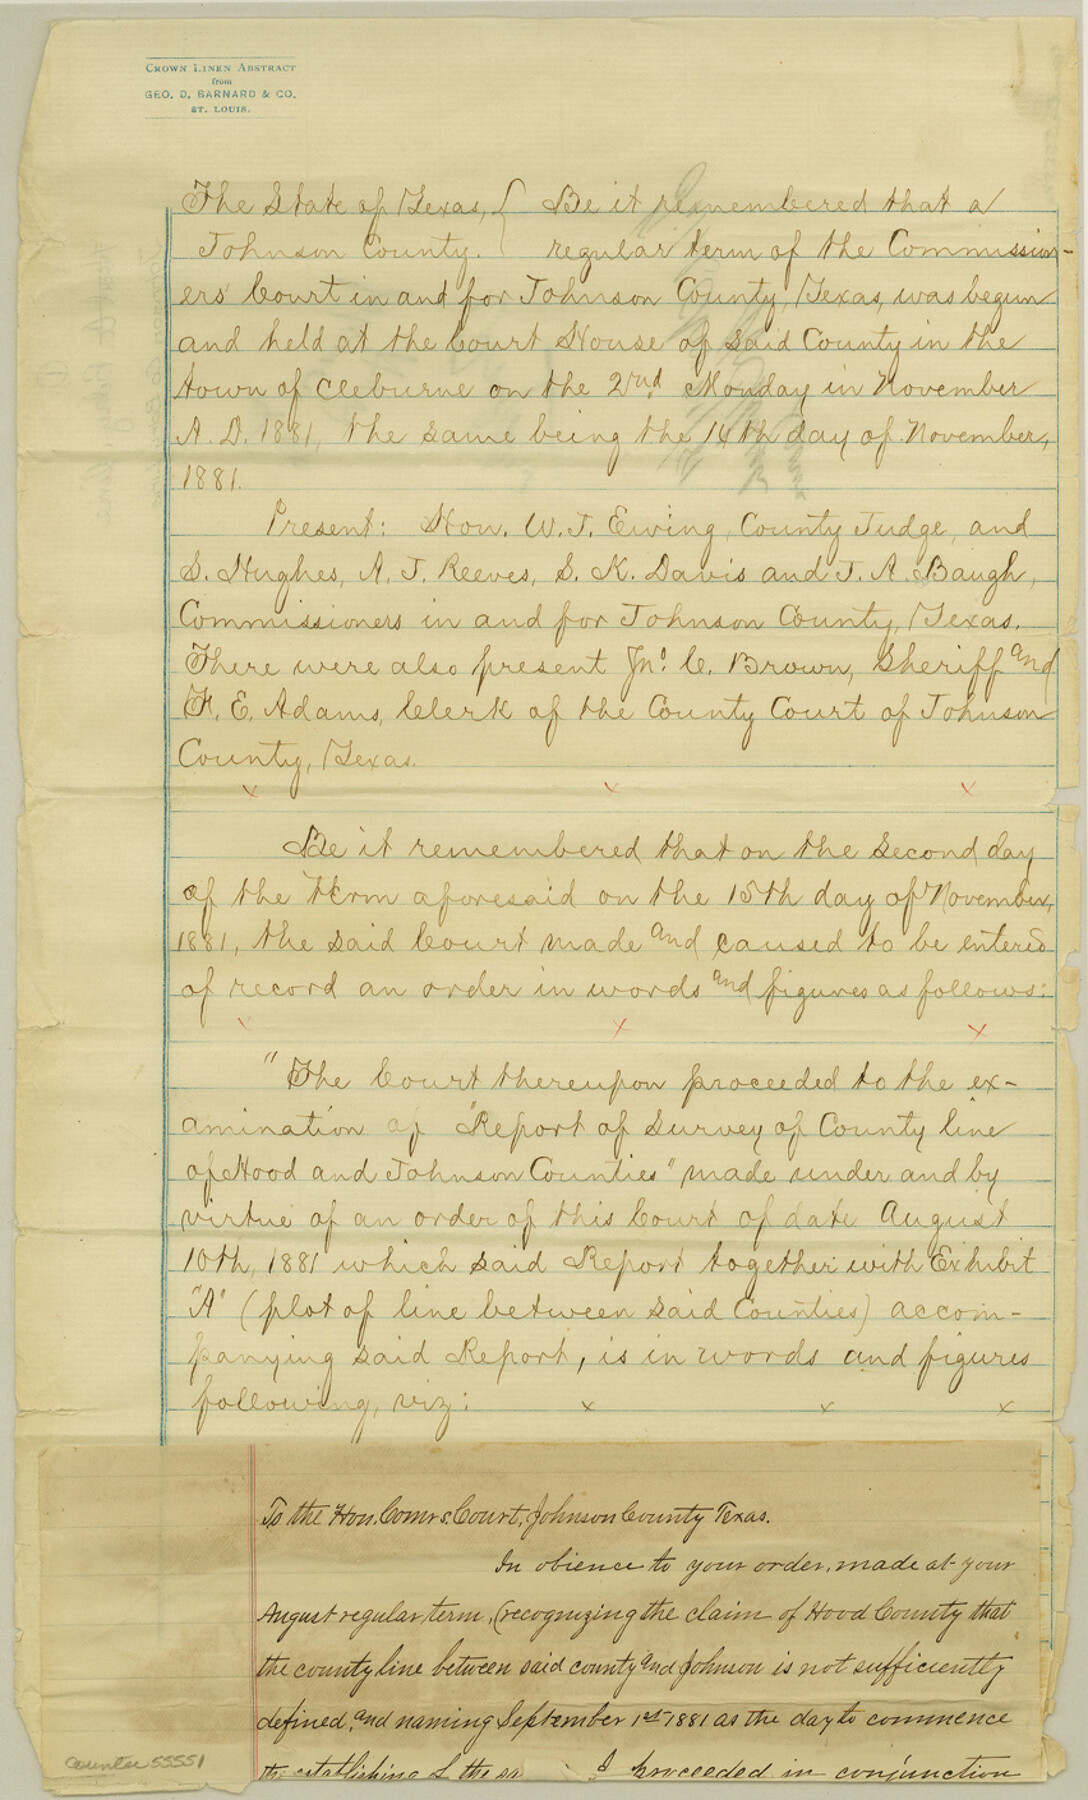 CROWN LINEN ABSTRACT
from
GEO. D. BARNARD & CO.
ST. LOUIS.
The State of Texas, { Be it remembered that a
Johnson County. regular term of the Commission-
ers' Court in and for Johnson County, Texas, was begun
and held at the Court House of said County in the
town of Cleburne on the 2nd Monday in November
A. D. 1881, the same being the 14th day of November,
1881.
Present: Hon. W. J. Ewing, County Judge, and
S. Hughes, A. J. Reeves, S. K. Davis and J. A. Baugh,
Commissioners in and for Johnson County, Texas.
There were also present Jno. C. Brown, Sheriff and
F. E. Adams, Clerk of the County Court of Johnson
County, Texas.
x x x
Be it remembered that on the second day
of the term aforesaid on the 15th day of November,
1881, the said Court made and caused to be entered
of record an order in words and figures as follows:
x x x
"The Court thereupon proceeded to the ex-
amination of "Report of Survey of County line
of Hood and Johnson Counties" made under and by
virtue of an order of this Court of date August
10th, 1881 which said Report together with Exhibit
"A" (plot of line between said Counties) accom-
panying said Report, is in words and figures
following, viz: x x x
To the Hon. Comrs. Court, Johnson County Texas.
In obience to your order, made at your
August regular term, (recognizing the claim of Hood County that
the county line between said county and Johnson is not sufficiently
defined, and naming September 1st 1881 as the day to commence
the establishing of the sa I proceeded in conjunction
counter 55551